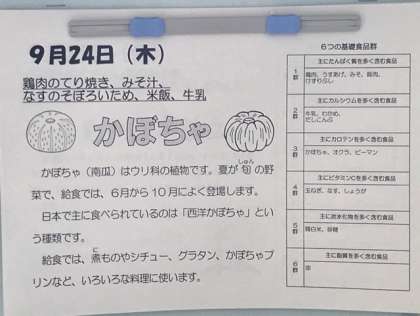 9月24日（木）
鶏肉のてり焼き、みそ汁、
なすのそぼろいため、米飯、牛乳
かぼちゃ
かぼちゃ（南瓜）はウリ科の植物です。夏が旬の野
しゅん
菜で、給食では、6月から10月によく登場します。
日本で主に食べられているのは「西洋かぼちゃ」とい
う種類です。
給食では、煮ものやシチュー、グラタン、かぼちゃプ
に
リンなど、いろいろな料理に使います。
6つの基礎食品群
1群
主にたんぱく質を多く含む食品
鶏肉、うすあげ、みそ、豚肉、
けずりぶし
2群
主にカルシウムを多く含む食品
牛乳、わかめ、
だしこんぶ
3群
主にカロテンを多く含む食品
かぼちゃ、オクラ、ピーマン
4群
主にビタミンCを多く含む食品
玉ねぎ、なす、しょうが
5群
主に炭水化物を多く含む食品
精白米、砂糖
6群
主に脂質を多く含む食品